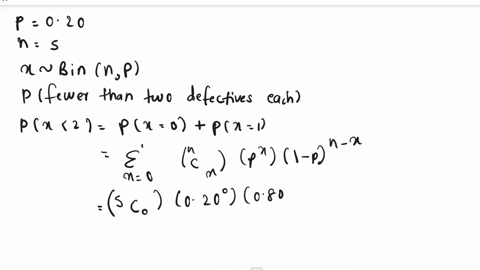 p = 0.20
n = 5
x ~ Bin (n, p)
P (fewer than two defectives each)
P(x < 2) = P(x = 0) + P(x = 1)
= Σ¹ₓ₌₀ (ⁿCₓ) (pˣ) (1-p)ⁿ⁻ˣ
= (5C₀) (0.20⁰) (0.80